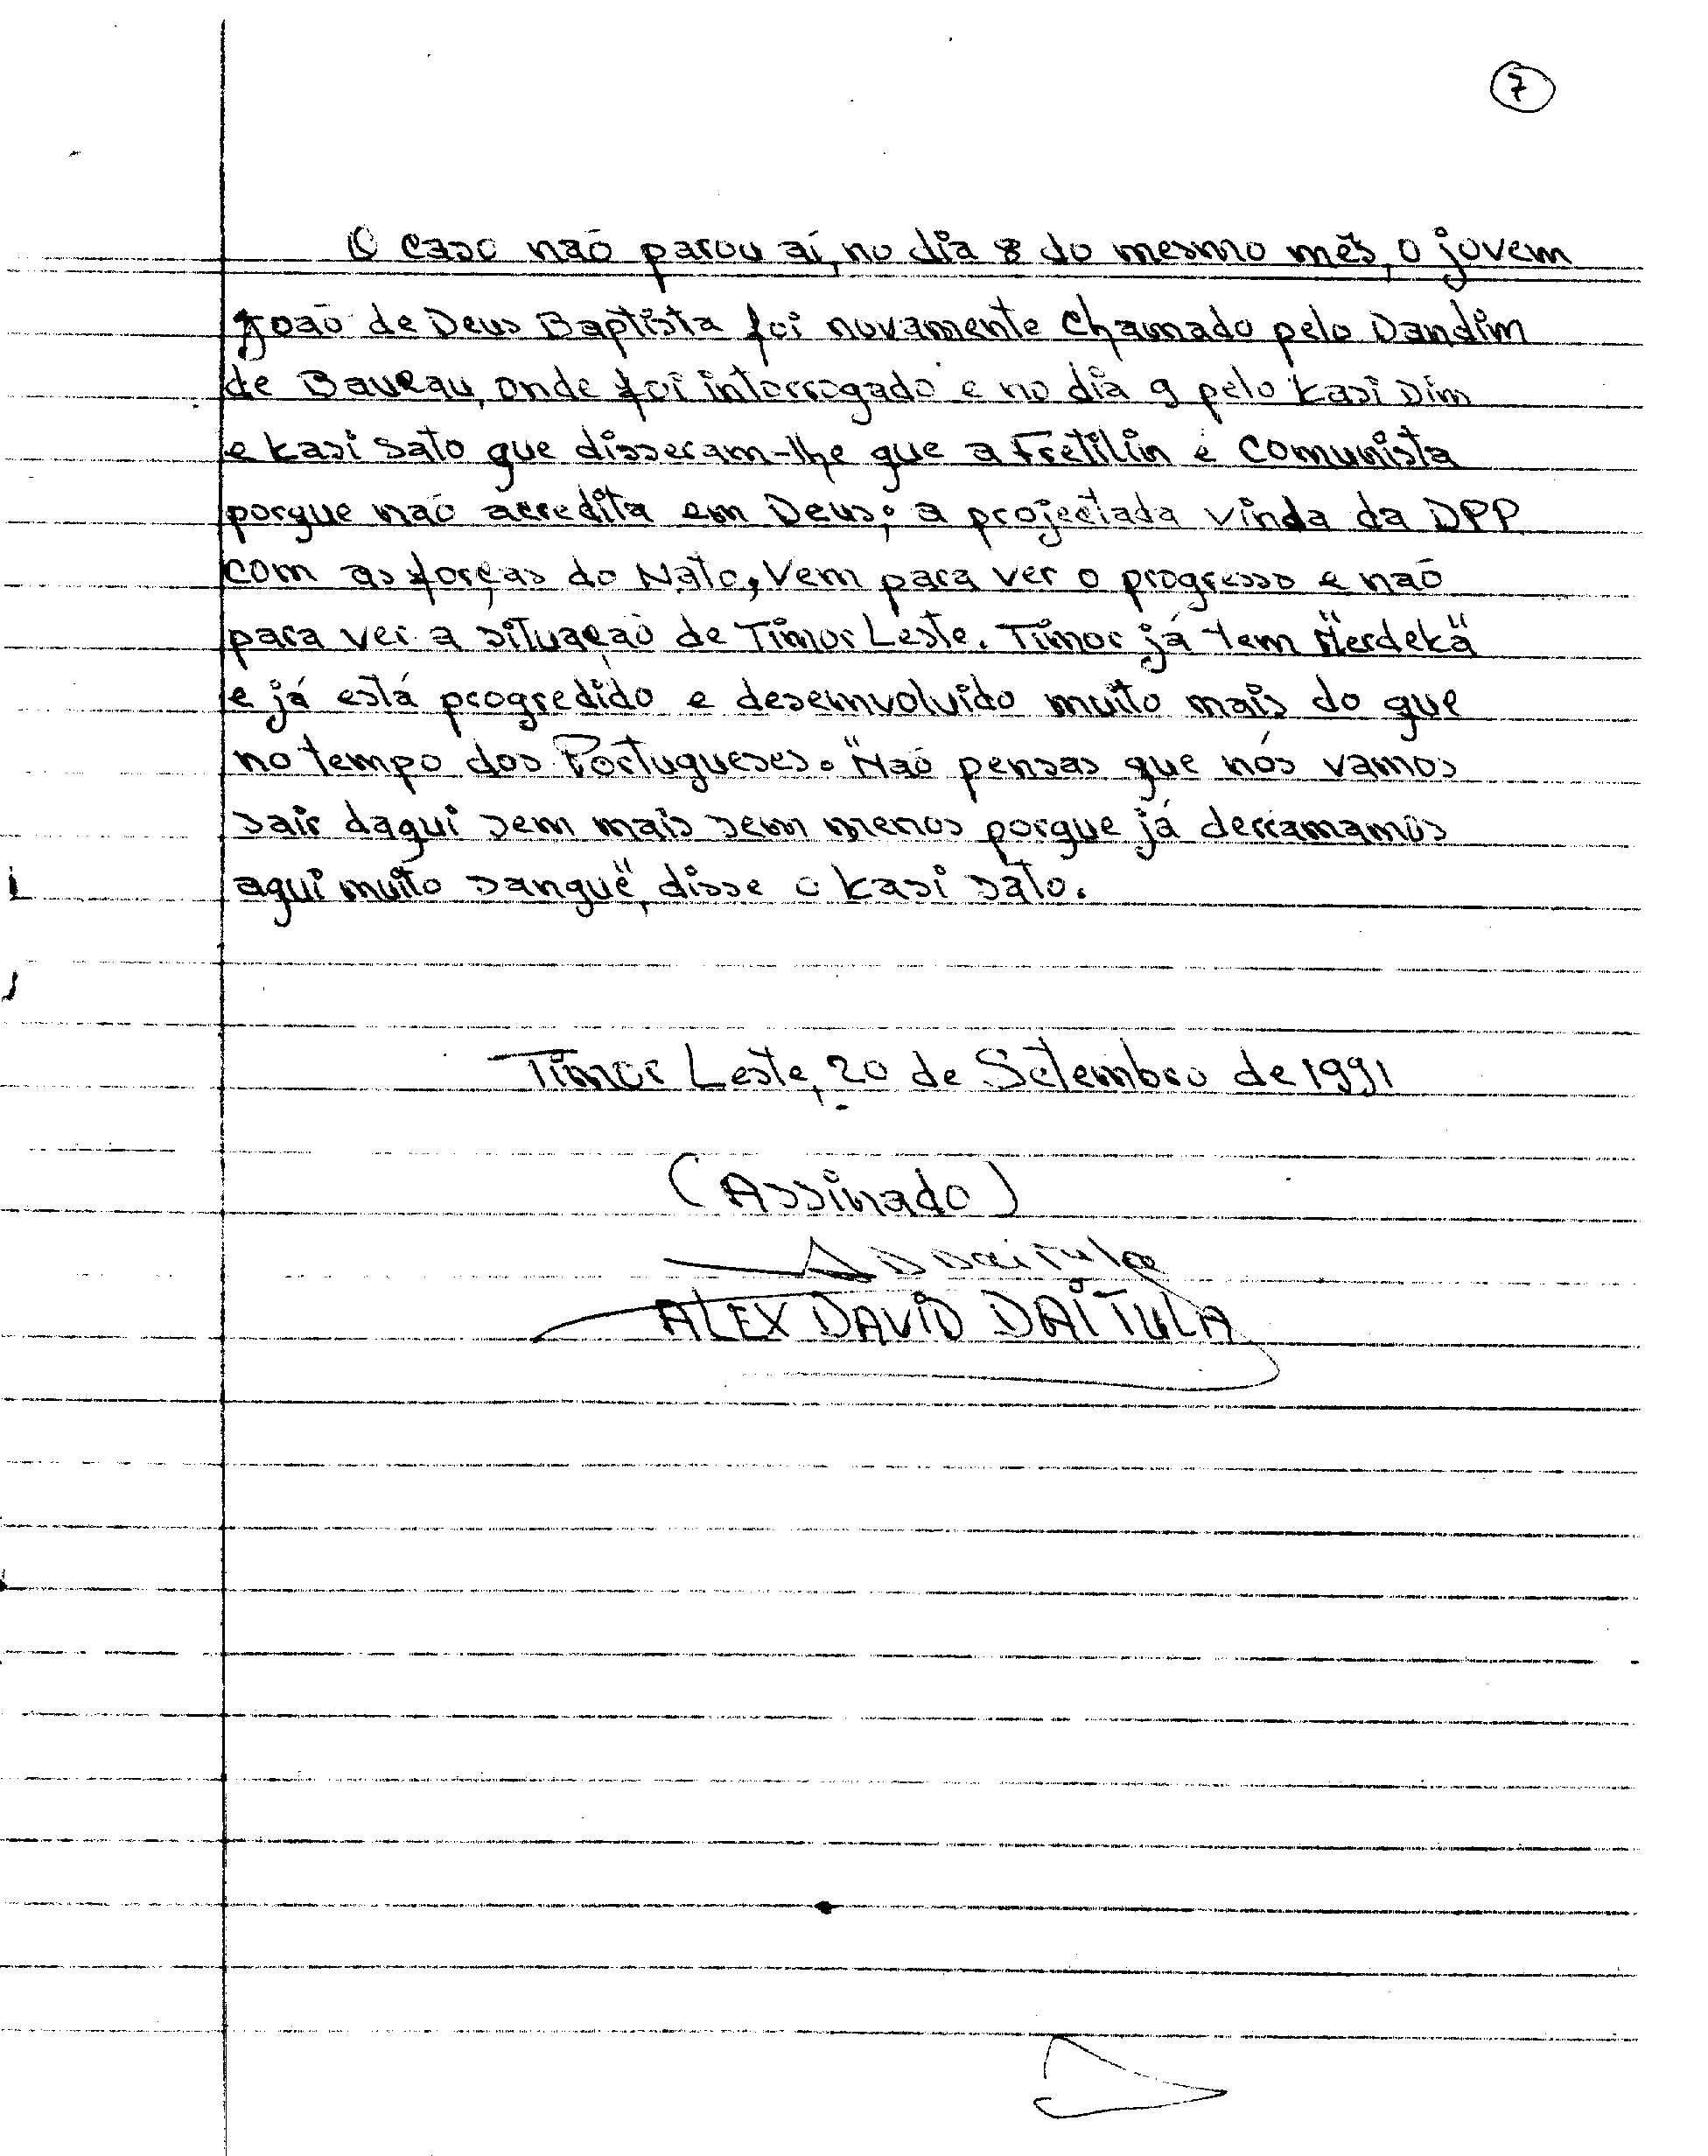 7
O caso não parou aí, no dia 8 do mesmo mês, o jovem
João de Deus Baptista foi novamente chamado pelo Dandim
de Baucau, onde foi interrogado e no dia 9 pelo Kasi Dim
e kasi sato que disseram-lhe que a Fretilin é comunista
porque não acredita em Deus; a projectada vinda da DPP
com as forças do Nato, vem para ver o progresso e não
para ver a situação de Timor Leste. Timor já tem "Merdeka"
e já está progredido e desemvolvido muito mais do que
no tempo dos Portugueses. "Não pensas que nós vamos
sair daqui sem mais sem menos porque já derramamos
aqui muito sangue", disse o kasi sato.
Timor Leste, 20 de Setembro de 1991
(Assinado)
ADDaitula
ALEX DAVID DAITULA